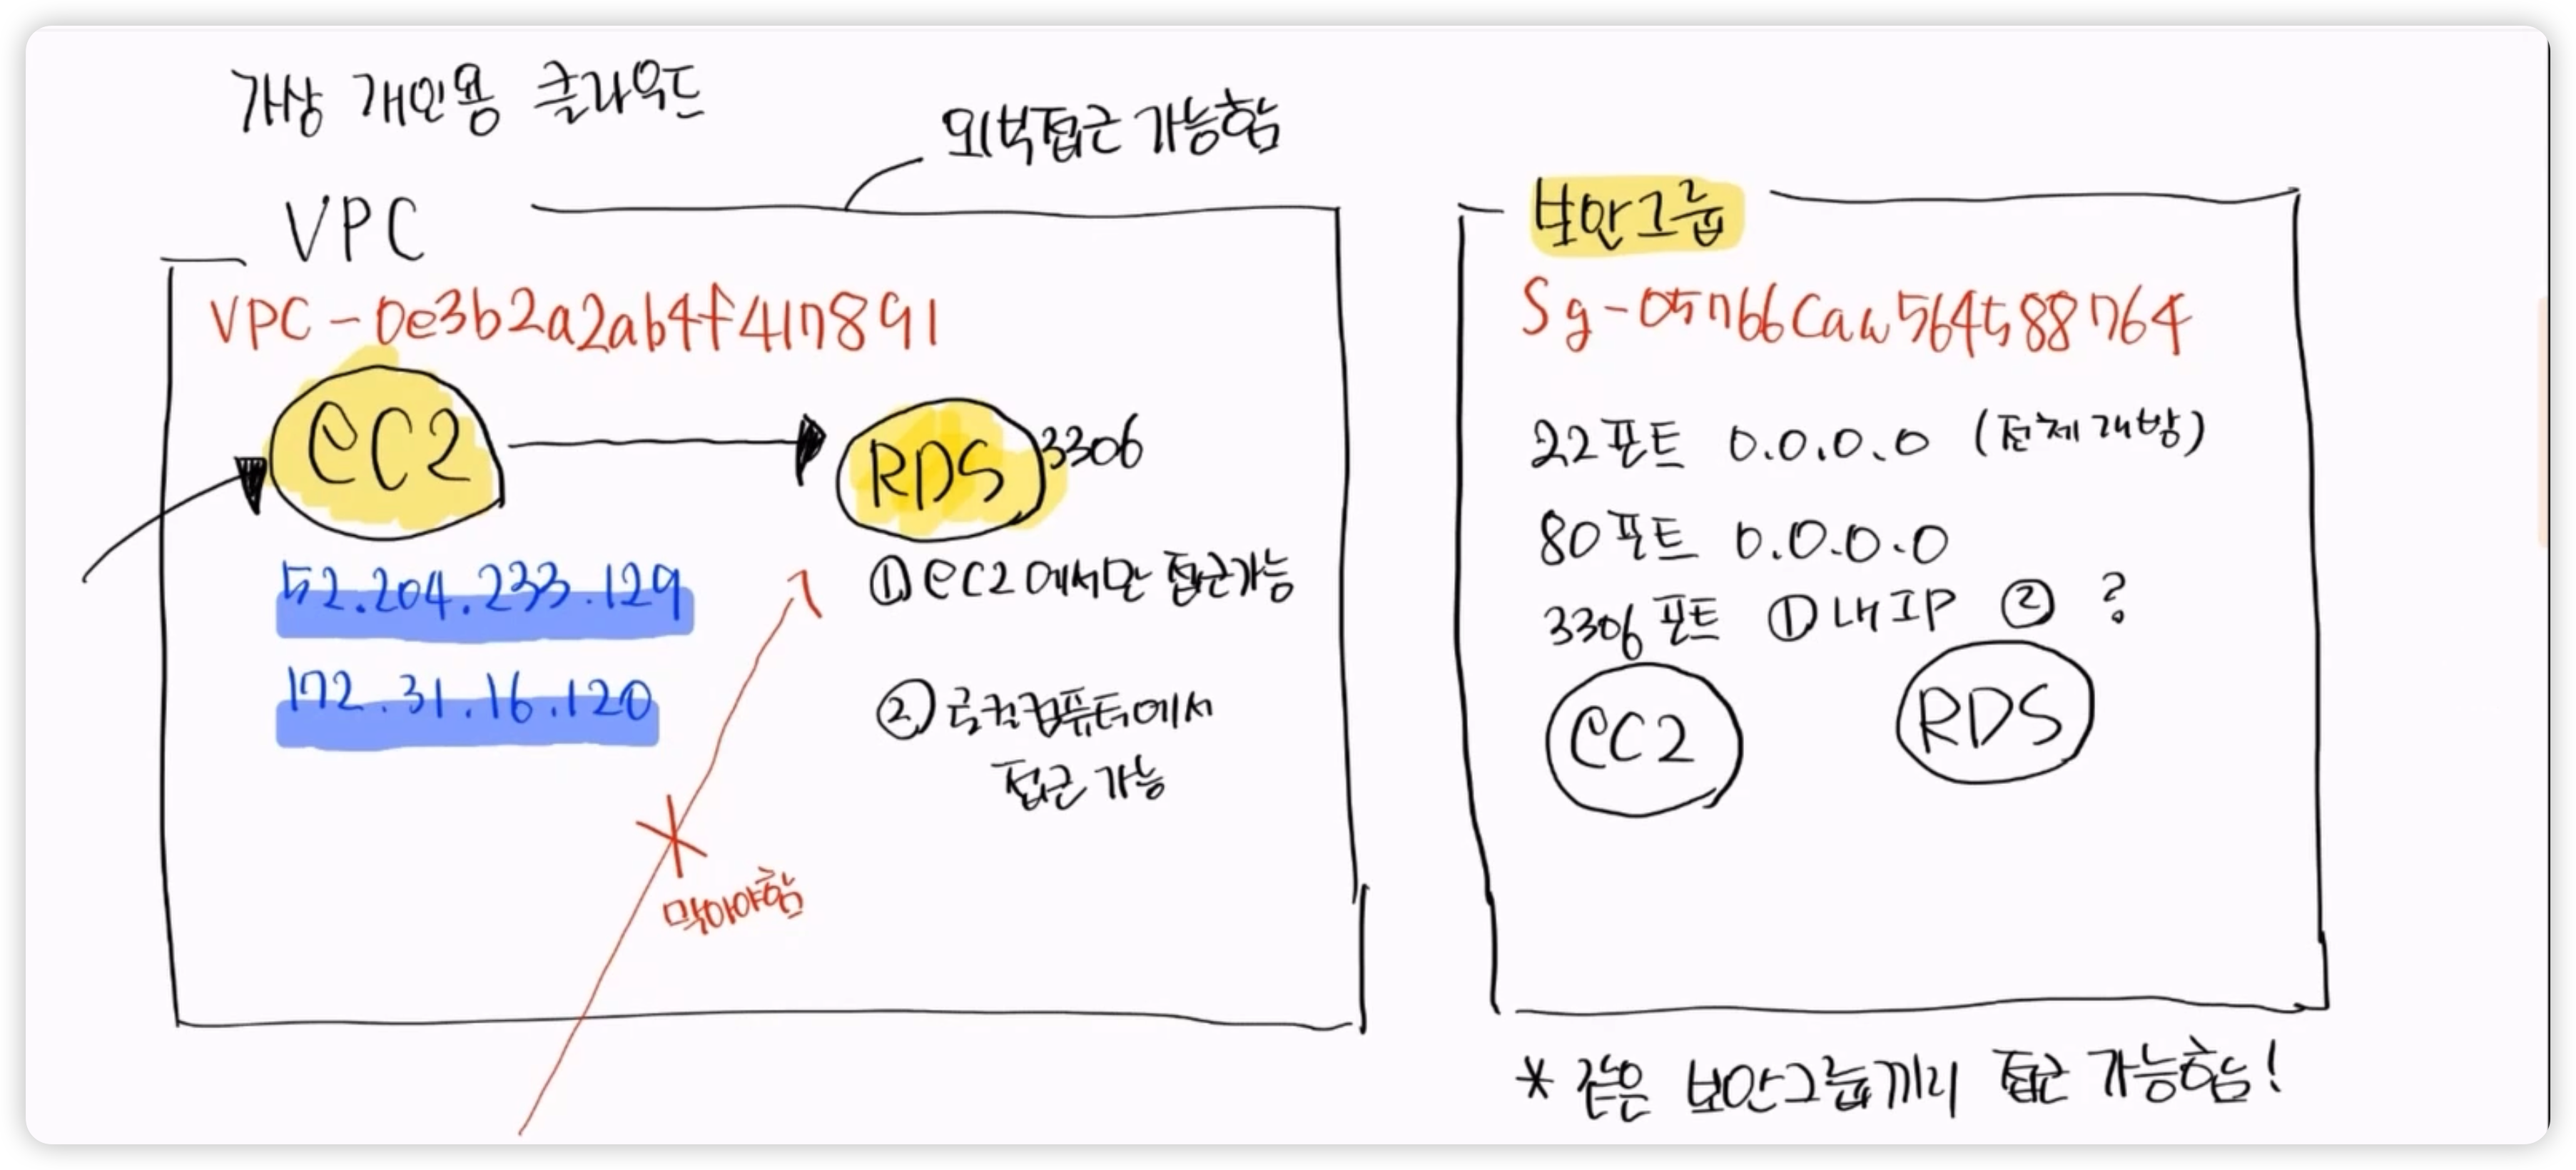 가상 개인용 클라우드
외부접근 가능함
VPC
VPC-0e3b2a2ab4f417891
EC2
RDS
3306
52.204.233.129
172.31.16.120
① EC2에서만 접근가능
② 로컬컴퓨터에서
접근 가능
막아야함
보안그룹
22포트 0.0.0.0 (전체개방)
80포트 0.0.0.0
3306포트 ① 내IP ② ?
EC2
RDS
* 같은 보안그룹끼리 접근 가능함!